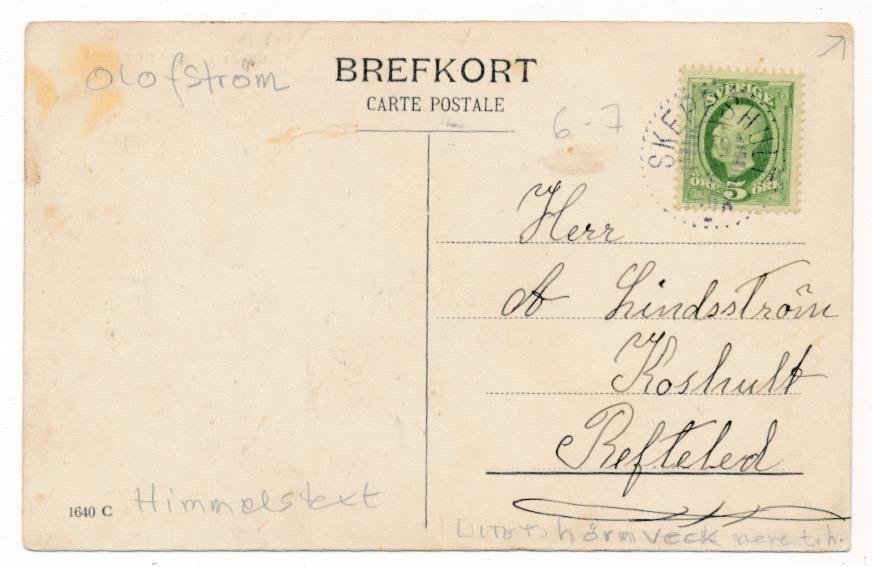 Olofström
BREFKORT
CARTE POSTALE
6-7
SVERIGE
ÖRE 5 ÖRE
Herr
A Lindsström
Koshult
Refteled
1640 C
Himmelstext
hörn veck nere t.h.